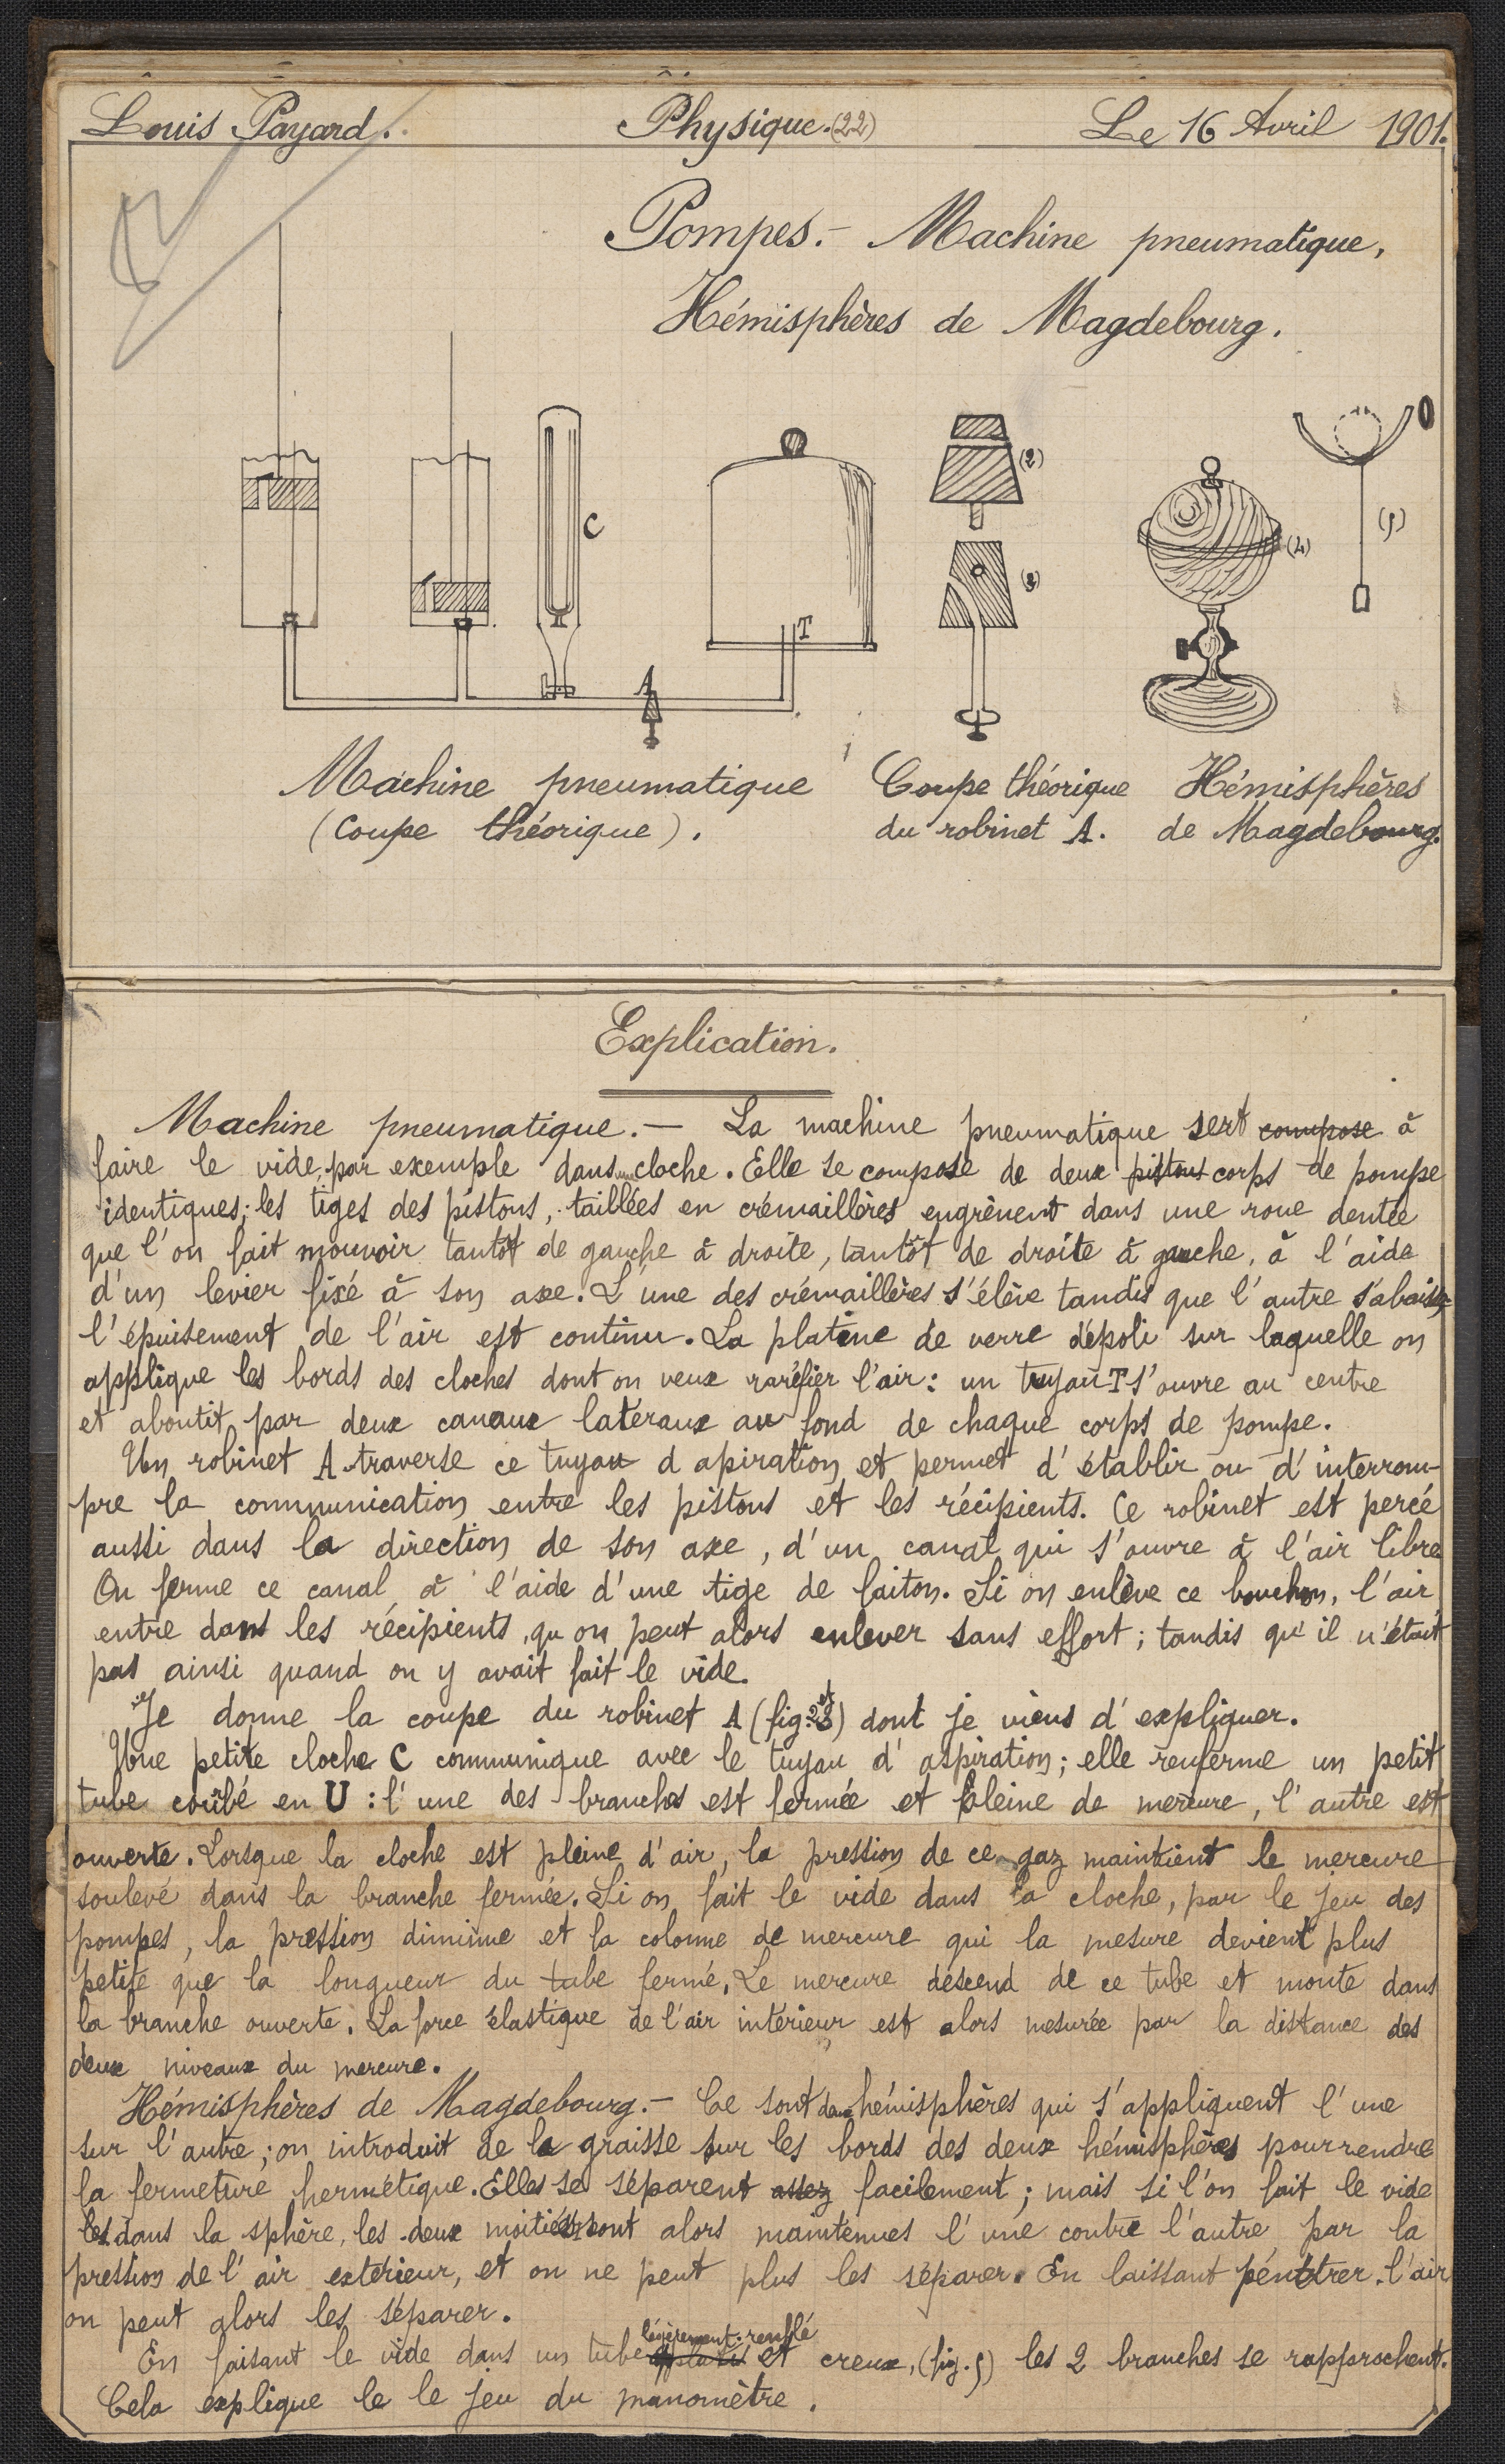 Louis Payard. Physique. (22) Le 16 Avril 1901.
Pompes. - Machine pneumatique,
Hémisphères de Magdebourg.
C
T
A
(2)
(3)
(4)
(5)
Machine pneumatique
(Coupe théorique).
Coupe théorique
du robinet A.
Hémisphères
de Magdebourg.
Explication.
Machine pneumatique. - La machine pneumatique sert compose à
faire le vide, par exemple dans une cloche. Elle se compose de deux pistons corps de pompe
identiques; les tiges des pistons, taillées en crémaillères engrènent dans une roue dentée
que l'on fait mouvoir tantôt de gauche à droite, tantôt de droite à gauche, à l'aide
d'un levier fixé à son axe. L'une des crémaillères s'élève tandis que l'autre s'abaisse,
l'épuisement de l'air est continu. La platine de verre dépoli sur laquelle on
applique les bords des cloches dont on veux raréfier l'air: un tuyau T s'ouvre au centre
et aboutit par deux canaux lateraux au fond de chaque corps de pompe.
Un robinet A traverse ce tuyau d apiration et permet d'établir ou d'interrom-
pre la communication entre les pistons et les récipients. Ce robinet est percé
aussi dans la direction de son axe, d'un canal qui s'ouvre à l'air libre
On ferme ce canal à l'aide d'une tige de laiton. Si on enlève ce bouchon, l'air
entre dans les récipients, qu on peut alors enlever sans effort; tandis qu'il n'était
pas ainsi quand on y avait fait le vide.
Je donne la coupe du robinet A (fig. 2 et 3) dont je viens d'expliquer.
Une petite cloche C communique avec le tuyau d'aspiration; elle renferme un petit
tube coûbé en U: l'une des branches est fermée et pleine de mercure, l'autre est
ouverte. Lorsque la cloche est pleine d'air, la pression de ce gaz maintient le mercure
soulevé dans la branche fermée. Si on fait le vide dans la cloche, par le jeu des
pompes, la pression diminue et la colonne de mercure qui la mesure devient plus
petite que la longueur du tube fermé, Le mercure descend de ce tube et monte dans
la branche ouverte. La force élastique de l'air intérieur est alors mesurée par la distance des
deux niveaux du mercure.
Hémisphères de Magdebourg. - Ce sont deux hémisphères qui s'appliquent l'une
sur l'autre; on introduit de la graisse sur les bords des deux hémisphères pour rendre
la fermeture hermétique. Elles se séparent assez facilement; mais si l'on fait le vide
les dans la sphère, les deux moitiés sont alors maintenues l'une contre l'autre par la
pression de l'air extérieur, et on ne peut plus les séparer. En laissant pénétrer l'air
on peut alors les séparer.
légèrement renflé
En faisant le vide dans un tube aplatis et creux, (fig. 5) les 2 branches se rapprochent.
Cela explique le le jeu du manomètre.